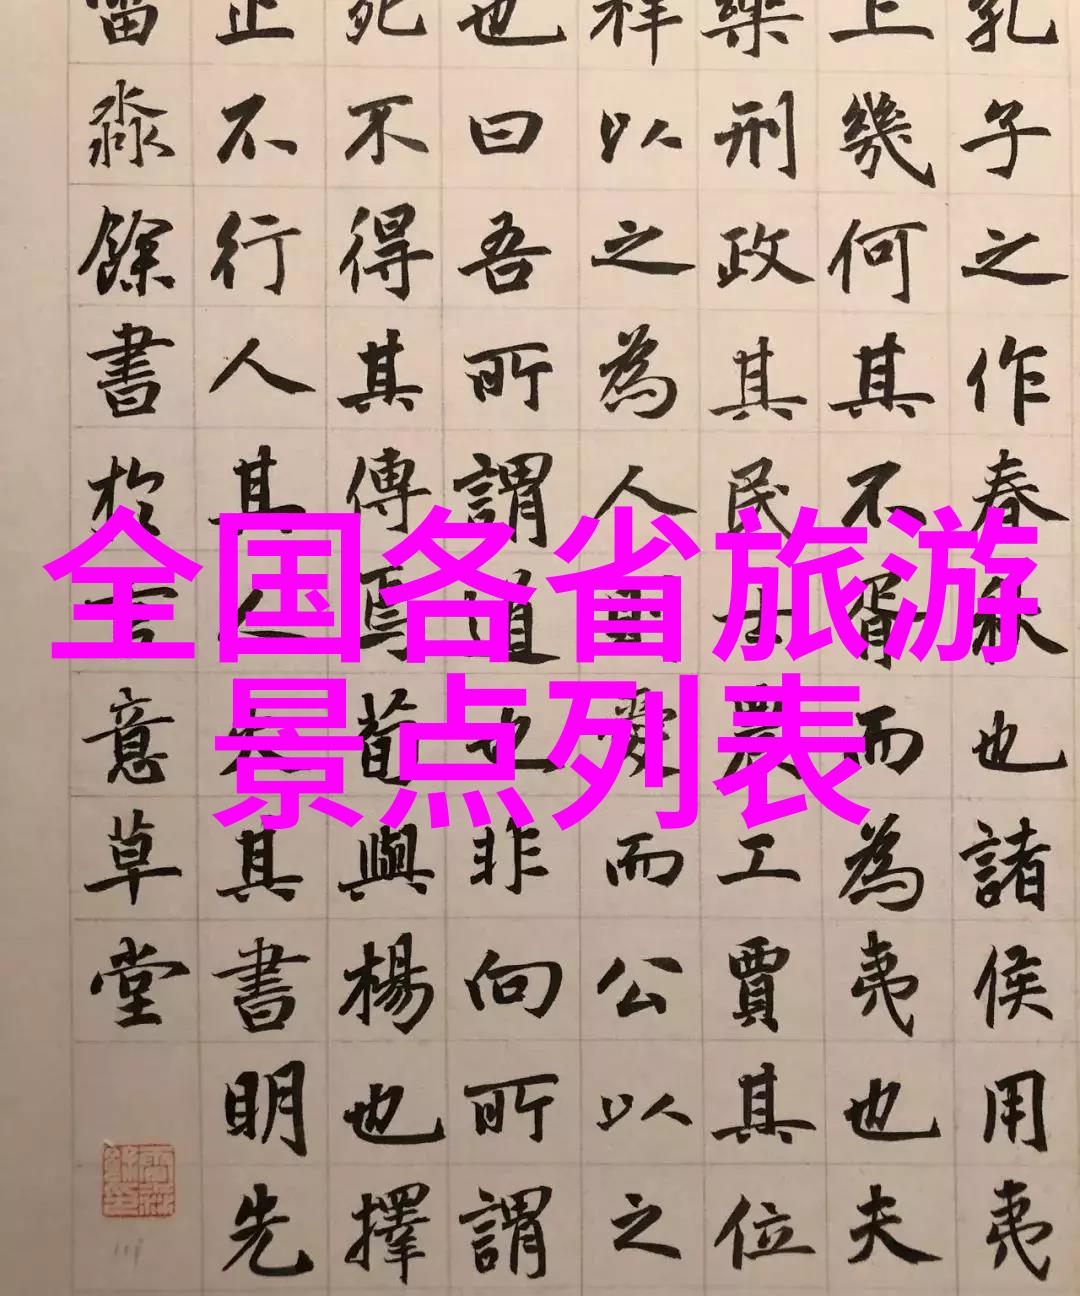 孔子之作春秋也諸侯用夷
上幾何其不胥而為夷也夫
樂刑政其民士農工賈其位
祥以之為人則愛而公以之
也曰吾所謂道也非向所謂
死不得其傳焉荀與楊也擇
止不行人其人火其書明先
淼餘書於意草堂
全国各省旅游
景点列表